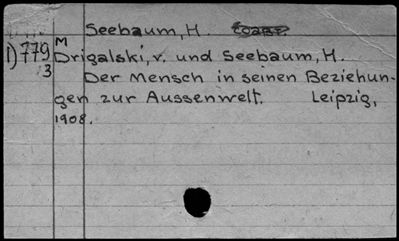 Seebaum, H.
M
1) 779 Drigalski, v. und Seebaum, H.
3 Der Mensch in seinen Beziehun-
gen zur Aussenwelt. Leipzig,
1908.